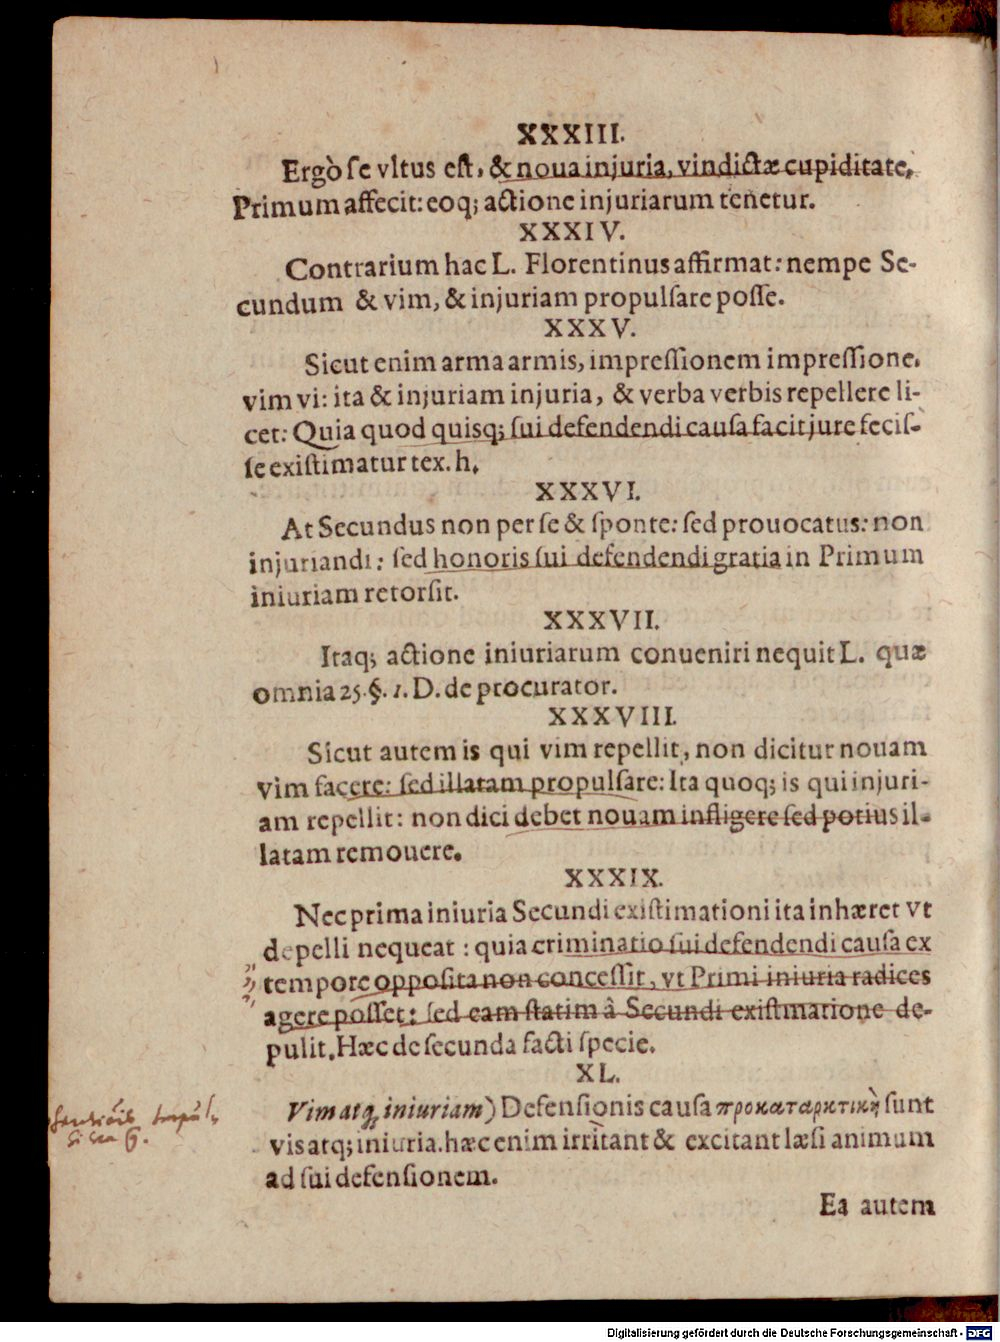 XXXIII.
Ergò ſe vltus eſt, & noua injuria, vindictæ cupiditate,
Primum affecit: eoq; actione injuriarum tenetur.
XXXIV.
Contrarium hac L. Florentinus affirmat: nempe Se-
cundum & vim, & injuriam propulſare poſſe.
XXXV.
Sicut enim arma armis, impreſſionem impreſſione,
vim vi: ita & injuriam injuria, & verba verbis repellere li-
cet: Quia quod quisq; ſui defendendi cauſa facit jure feciſ-
ſe exiſtimatur tex. h.
XXXVI.
At Secundus non per ſe & ſponte: ſed prouocatus: non
injuriandi: ſed honoris ſui defendendi gratia in Primum
iniuriam retorſit.
XXXVII.
Itaq; actione iniuriarum conueniri nequit L. quæ
omnia 25. §. 1. D. de procurator.
XXXVIII.
Sicut autem is qui vim repellit, non dicitur nouam
vim facere: ſed illatam propulſare: Ita quoq; is qui injuri-
am repellit: non dici debet nouam infligere ſed potius il-
latam remouere.
XXXIX.
Nec prima iniuria Secundi exiſtimationi ita inhæret vt
depelli nequeat: quia criminatio ſui defendendi cauſa ex
tempore oppoſita non conceſſit, vt Primi iniuria radices
agere poſſet: ſed eam ſtatim â Secundi exiſtmatione de-
pulit. Hæc de ſecunda facti ſpecie.
XL.
Vim atq; iniuriam) Defenſionis cauſa προκαταρκτικὴ ſunt
vis atq; iniuria. hæc enim irrìtant & excitant læſi animum
ad ſui defenſionem.
Ea autem
Digitalisierung gefördert durch die Deutsche Forschungsgemeinschaft - DFG